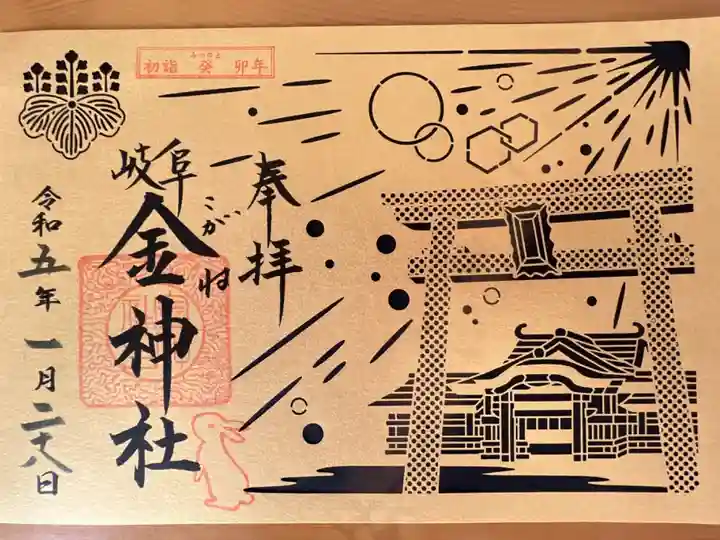 初詣 癸 卯年
奉拝
岐阜
こがね
金神社
令和五年一月二十八日